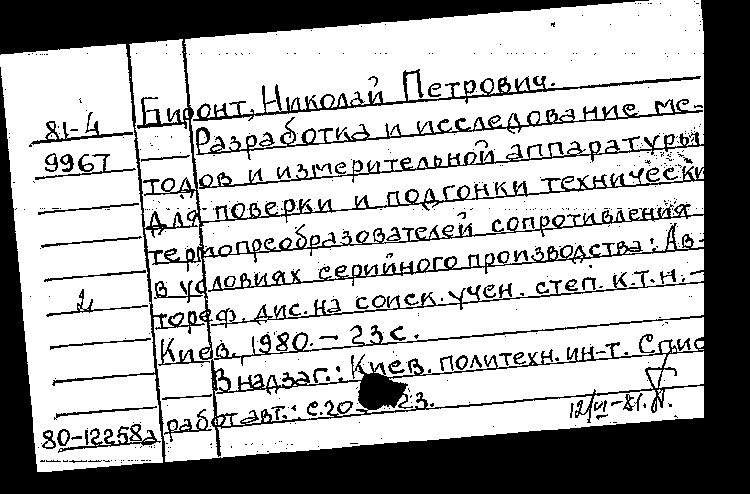 81-4
9967
2
80-12258а
Биронт, Николай Петрович.
Разработка и исследование ме-
тодов и измерительной аппаратуры
для поверки и подгонки технически
термопреобразователей сопротивления
в условиях серийного производства: Ав-
тореф. дис. на соиск. учен. степ. к.т.н. -
Киев., 1980. - 23 с.
В надзаг.: Киев. политехн. ин-т. Спис
работ авт.: с.20 23.
12/VI-81.